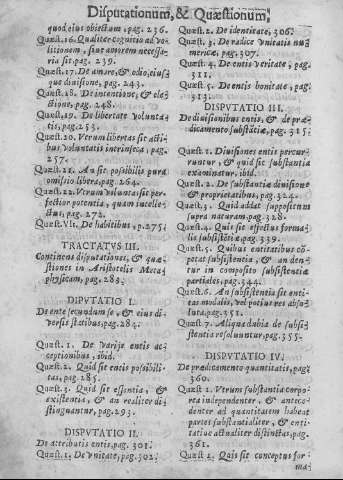 Disputationum, & Quæstionum,
quod eius obiectam, pag. 236.
Quæst. 16. Qualiter cognitio ad volitionem, sint amorem necessaria sit pag. 239.
Quæst. 17. De amore, & odio, eiusque diuisione, pag. 243.
Quæst. 18. De intentione, & electione, pag. 248.
Quæst. 19. De libertate voluntatis, pag. 253.
Quæst. 20. Verum libertas sit actibus voluntatis intrinseca, pag. 257.
Quæst. 21. An sit possibilis pura omissio libera, pag. 264.
Quæst. 22. Vtrum voluntas sit perfectior potentia, quam intellectus, pag. 272.
Quæst. Vlt. De habitibus, p. 275.
TRACTATVS III.
Continens disputationes, & quæstiones in Aristotelis Metaphysicam, pag. 283.
DIPVTATIO I.
De ente secundum se, & eius diuersis statibus, pag. 284.
Quæst. 1. De varijs entis acceptionibus, ibid.
Quæst. 2. Quid sit entis possibilitas, pag. 285.
Quæst. 3. Quid sit essentia, & existentia, & an realiter distinguantur, pag. 293.
DISPVTATIO II.
De attributis entis, pag. 301.
Quæst. 1. De vnitate, pag. 302.
Quæst. 2. De identitate, 306.
Quæst. 3. De radice vnitatis numericæ, pag. 307.
Quæst. 4. De entis veritate, pag. 311.
Quæst. 5. De entis bonitate, pag. 313.
DISPVTATIO III.
De diuisionibus entis, & de prædicamento substātiæ, pag. 315.
Quæst. 1. Diuisiones entis percurruntur, & quid sit substantia examinatur. ibid.
Quæst. 2. De substantiæ diuisione & proprietatibus, pag. 324.
Quæst. 3. Quid addat suppositum supra naturam. pag. 328.
Quæst. 4. Quis sit effectus formalis subsistētiæ, pag. 339.
Quæst. 5. Quibus entitatibus competat subsistentia, & an dentur in composito subsistentiæ partiales, pag. 344.
Quæst. 6. An subsistentia sit entitas modalis, vel potius res absoluta, pag. 351.
Quæst. 7. Aliqua dubia de subsistentia resoluuntur, pag. 355.
DISPVTATIO IV.
De prædicamento quantitatis, pag. 360.
Quæst. 1. Vtrum substantia corporea independenter, & antecedenter ad quantitatem habeat partes substantialiter, & entitatiue actualiter distinctas, pag. 361.
Quæst. 2. Quis sit conceptus forma-